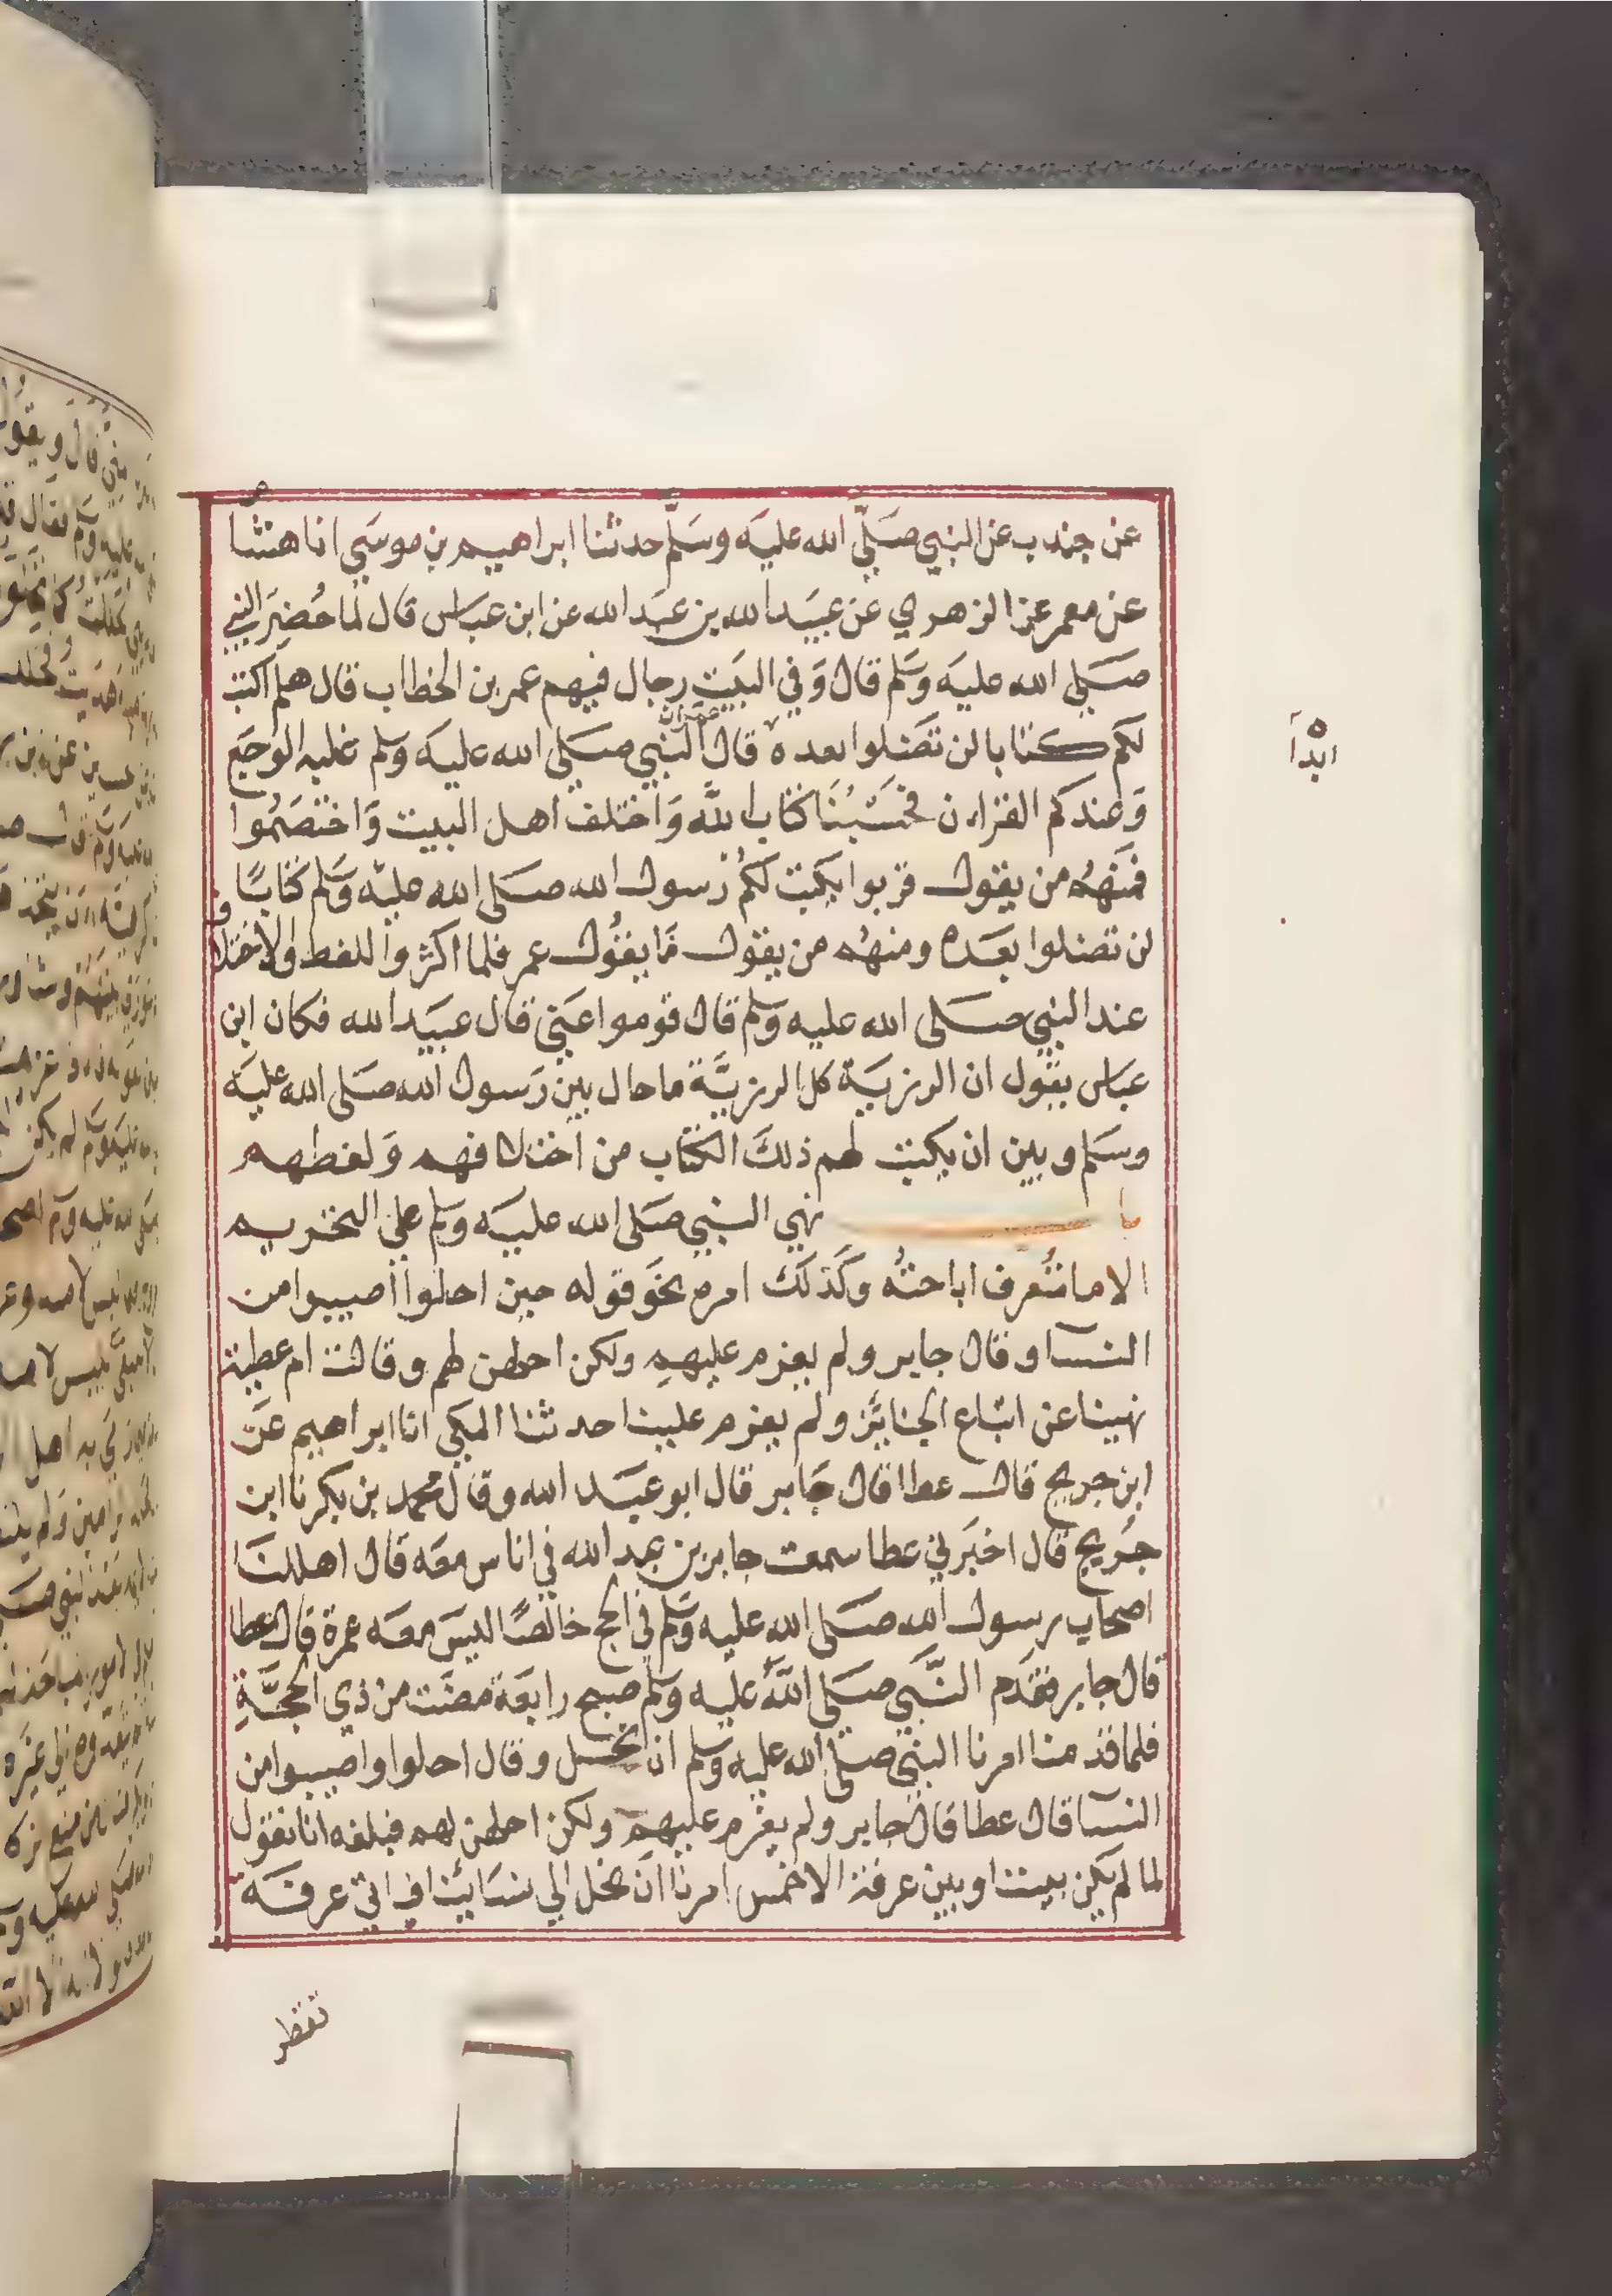 عن جندب عن النبي صَلّى الله عليَه وسَلّم حدثنا ابراهيم بن موسَي انا هشا
م
عن معمر عن الزهري عن عبيَد الله بن عبَد الله عن ابن عباس قال لما حُضِرَ النبي
صَلي الله عليَه وَسَلم قال وَفي البيَت رجال فيهم عمر بن الخطاب قال هلم اكتب
لكم كتابا لن تضلوا بعده قال النبي صَلي الله عليَه وسلم غلبه الوجَع
عمر ان
ابداً
وَعندكم القران فحَسْبُنَا كتاب اللَّه وَاختلف اهل البيت وَاختصَمُوا
فمنهُم من يقول قربوا يكتب لكُم رسول الله صَلى الله عليه وَسَلم كتابًا
لن تضلوا بعَده ومنهُم من يقول مَا يقُول عمر فلما اكثروا اللغط والاختلا
ف
عند النبي صَلى الله عليه وَسلم قال قوموا عَني قال عبيَد الله فكان ابن
عباس يقول ان الرزيَة كل الرزيَّة ما حال بين رَسول الله صَلى الله عليَه
وسَلم وبين ان يكتب لهم ذلكَ الكتاب من اختلافهم وَلغطهم
باب نهي النبي صَلى الله عليَه وسلم علي التحريم
الا ما تُعرف اباحتُه وكَذلكَ امره نحوَ قوله حين احلوا اصيبوا من
النسا وقال جابر ولم يعزم عليهم ولكن احلهن لهم وقالت ام عطية
نهينا عن اتباع الجنائز ولم يعزم علينا حدثنا المكي انا ابراهيم عَن
ابن جريج قال عطا قال جَابر قال ابو عبَد الله وقال محمد بن بكر نا ابن
جرَيج قال اخبَرني عطا سمعت جابر بن عبد الله في اناس معَه قال اهللنَا
اصحاب رسول الله صَلى الله عليه وَسَلم في الحج خالصًا ليسَ معَه عمرة قال عطا
قال جابر فقدَم النَّبي صَلي اللهُ عليه وَسلم صبح رابعَة مضَت من ذي الحجَّةِ
فلما قدمنا امرنا النبي صلى الله عليه وسلم ان نحل وقال احلوا واصيبوا من
النسا قال عطا قال جابر ولم يعزم عليهم ولكن احلهن لهم فبلغه انا نقول
لما لم يَكن بيننا وبين عرفة الا خمس امرنا ان نحل الي نسَائنا فناتي عرفَه
تقطر